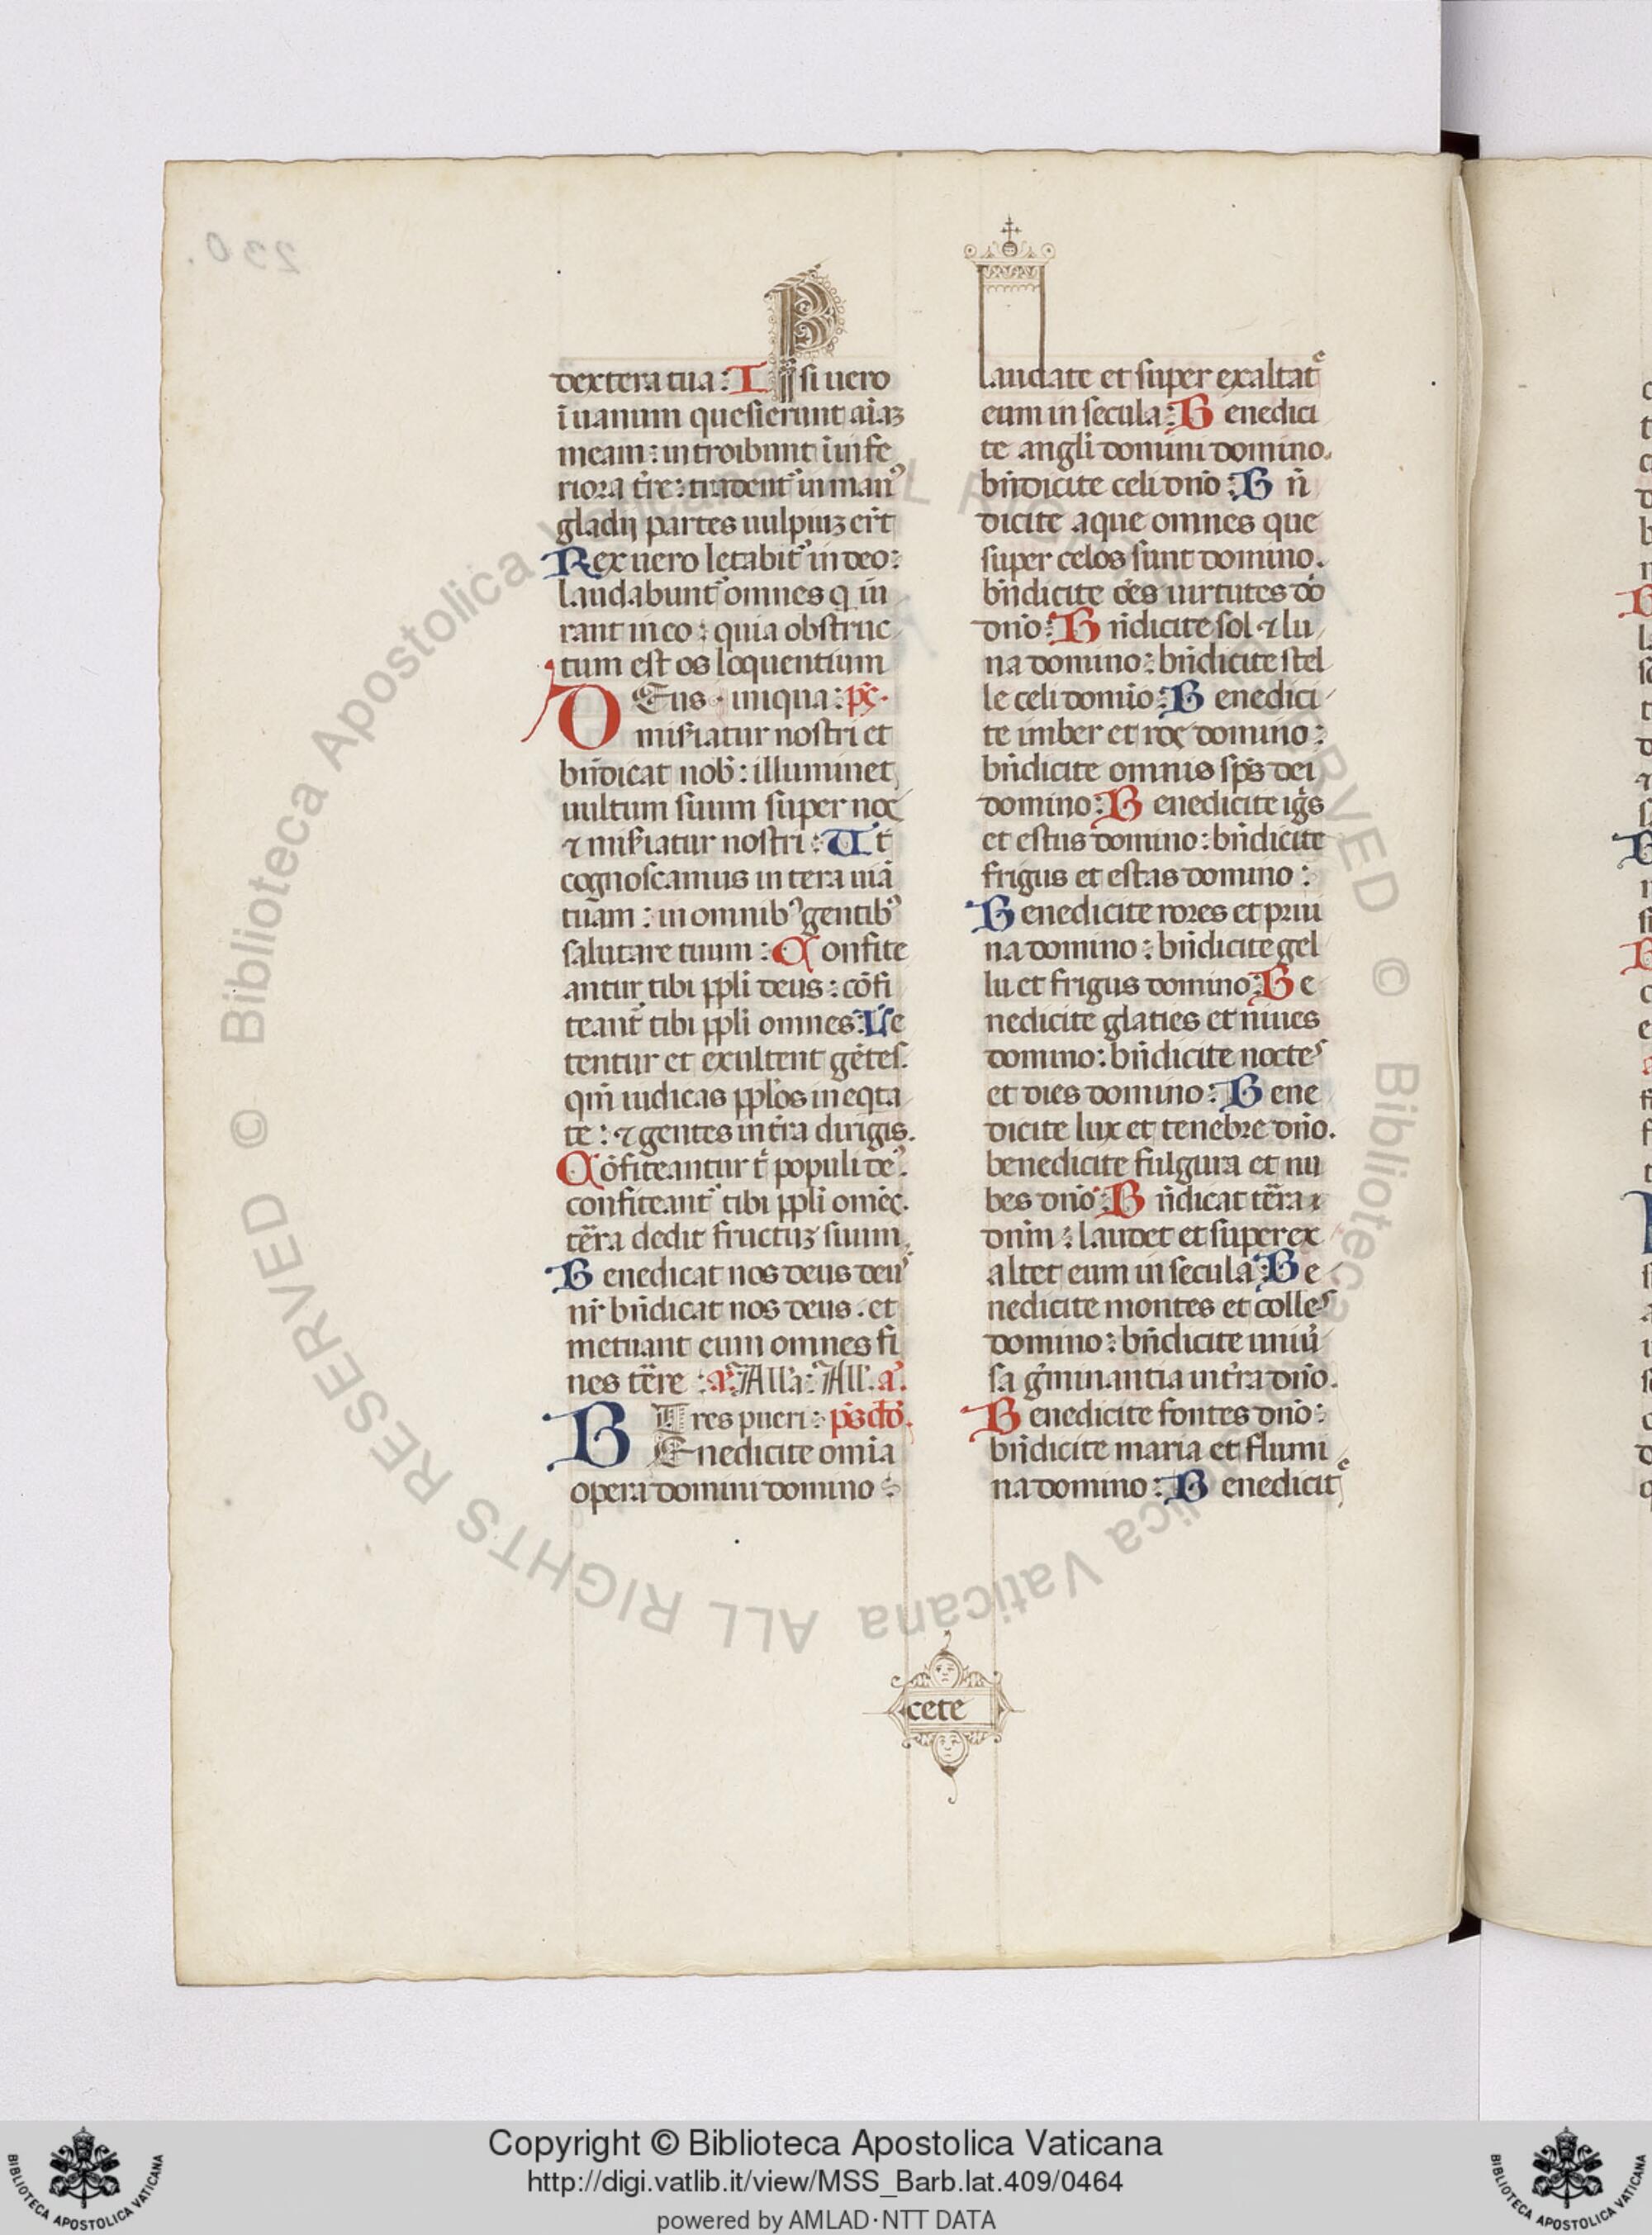 dextera tua : Ipsi uero
ī uanum quesierunt aīaz
meam : introibunt ī infe
riora t̄re : tradent᷑ in manꝰ
gladij partes uulpiuz er̄t
Rex uero letabit᷑ in deo :
laudabunt᷑ omnes q iu
rant in eo : quia obstruc
tum est os loquentium
DEus · iniqua : ps̄.
mis̄iatur nostri et
bn̄dicat nob̄ : illuminet
uultum suum super nos
⁊ mis̄iatur nostri : Ut
cognoscamus in tera uiā
tuam : in omnibꝰ gentibꝰ
salutare tuum : Confite
antur tibi pp̄li deus : cōfi
teant᷑ tibi pp̄li omnes : Le
tentur et exultent gētes.
qm̄ iudicas pp̄los in eqta
te : ⁊ gentes in t̄ra dirigis.
Cōfiteantur t̄ populi deꝰ.
confiteant᷑ tibi pp̄li om̄es.
tēra dedit fructuz suum.
Benedicat nos deus deuꝰ
nr̄ bn̄dicat nos deus . et
metuant eum omnes fi
nes tēre : a. All'a : All'. a.
Tres pueri : ps̄
BEnedicite omīa
opera domini domino :
laudate et super exaltate
eum in secula : Benedici
te angli domini domino.
bn̄dicite celi dn̄o : Bn̄
dicite aque omnes que
super celos sunt domino.
bn̄dicite oēs uirtutes do
dn̄o : Bn̄dicite sol ⁊ lu
na domino : bn̄dicite stel
le celi domīo : Benedici
te imber et ros domino :
bn̄dicite omnis sp̄s dei
domino : Benedicite iḡs
et estus domino : bn̄dicite
frigus et estas domino :
Benedicite rores et prui
na domino : bn̄dicite gel
lu et frigus domino : Be
nedicite glaties et niues
domino : bn̄dicite noctes
et dies domino : Bene
dicite lux et tenebre dn̄o.
benedicite fulgura et nu
bes dn̄o : Bn̄dicat tēra
dnm̄ : laudet et superex
altet eum in secula : Be
nedicite montes et colles
domino : bn̄dicite uniu᷑
sa g᷑minantia in t̄ra dn̄o.
Benedicite fontes dn̄o :
bn̄dicite maria et flumi
na domino : Benedicite
cete
230.
© Biblioteca Apostolica Vaticana ALL RIGHTS RESERVED
© Biblioteca Apostolica Vaticana ALL RIGHTS RESERVED
Copyright © Biblioteca Apostolica Vaticana
http://digi.vatlib.it/view/MSS_Barb.lat.409/0464
powered by AMLAD·NTT DATA
BIBLIOTECA APOSTOLICA VATICANA
BIBLIOTECA APOSTOLICA VATICANA